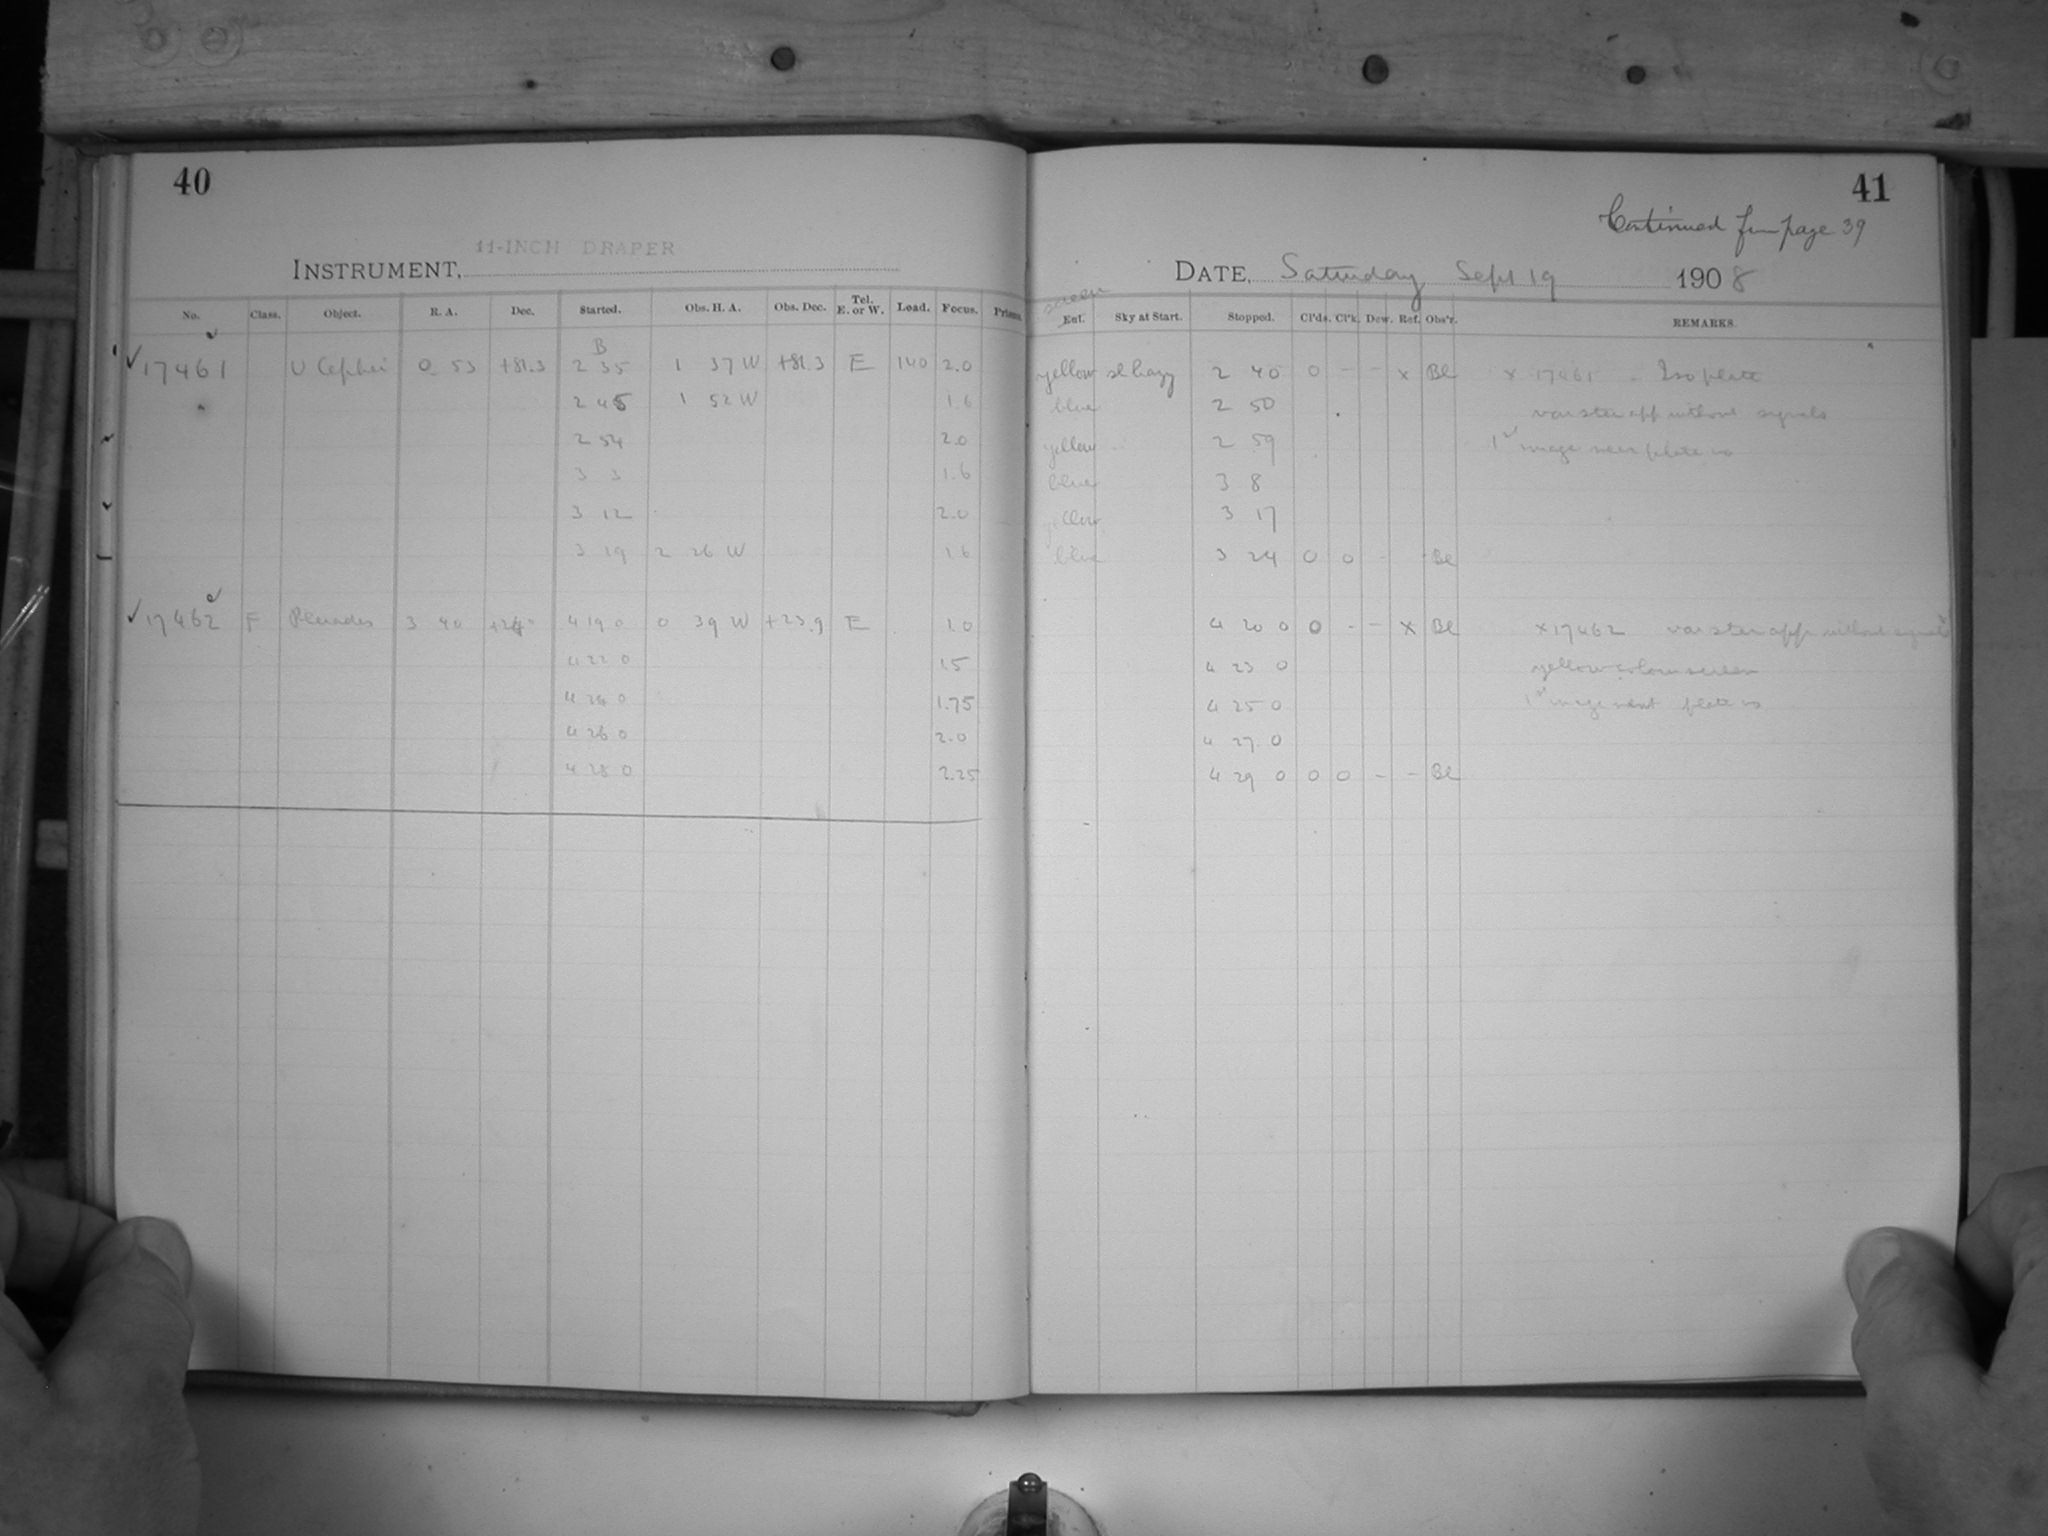 40
11-INCH DRAPER
INSTRUMENT,
No. Class. Object. R. A. Dec. Started. Obs. H. A. Obs. Dec. Tel. E. or W. Load. Focus. Prisms.
B
17461 U Cephei 0 53 +81.3 2 35 1 37 W +81.3 E 140 2.0
2 45 1 52 W 1.6
2 54 2.0
3 3 1.6
3 12 2.0
3 19 2 26 W 1.6
17462 F Pleiades 3 40 4 19 0 0 39 W +23.9 E 1.0
4 22 0 1.5
4 24 0 1.75
4 26 0 2.0
4 28 0 2.25
41
Continued fm page 39
DATE, Saturday Sept 19 1908
screen
Ent. Sky at Start. Stopped. Cl'ds. Cl'k. Dew. Ref. Obs'r. REMARKS.
yellow sl hazy 2 40 0 - - x Bl x 17461 - Iso plate
blue 2 50 var star app without signals
yellow 2 59 1st image near plate no
blue 3 8
yellow 3 17
blue 3 24 0 0 - Bl
4 20 0 0 - - x Bl x 17462 var star app without signals
4 23 0 yellow colour screen
4 25 0 1st image next plate no
4 27 0
4 29 0 0 0 - - Bl